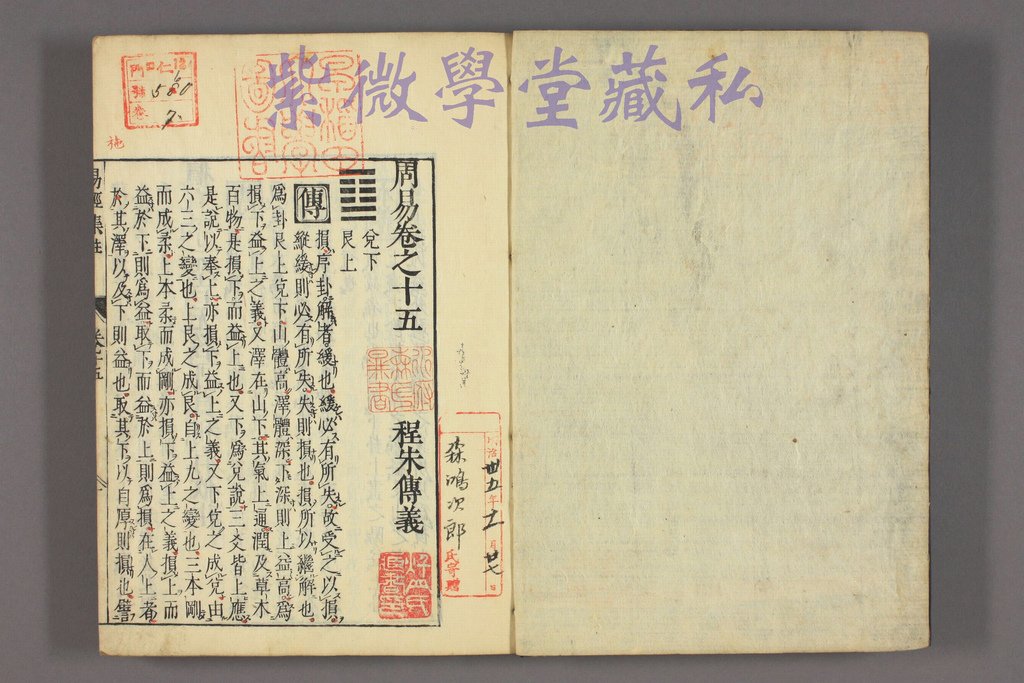 紫微學堂藏私
周易卷之十五
程朱傳義
兌下
艮上
傳
損序卦解者緩也緩必有所失故受之以損
縱緩則必有所失失則損也損所以繼解也
爲卦艮上兌下山體高澤體深下深則上益高爲
損下益上之義又澤在山下其氣上通潤及草木
百物是損下而益上也又下爲兌說三爻皆上應
是說以奉上亦損下益上之義又下兌之成兌由
六三之變也上艮之成艮自上九之變也三本剛
而成柔上本柔而成剛亦損下益上之義損上而
益於下則爲益取下而益於上則爲損在人上者
於其澤以及下則益也取其下以自厚則損也譬
易經集註
卷十五
明治卅五年十一月廿七日
森鴻次郎氏寄贈